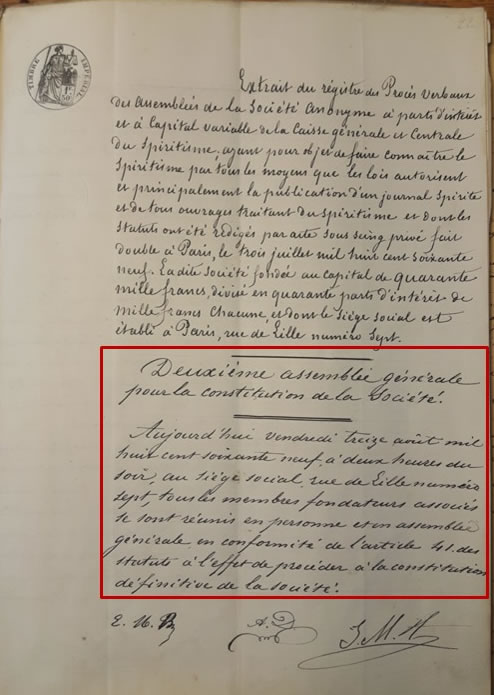 22
TIMBRE IMPÉRIAL
1F
50c
Extrait du régistre des Procès verbaux
des Assemblées de la Société Anonyme à parts d'intérêt
et à Capital variable de la Caisse générale et Centrale
du Spiritisme, ayant pour objet de faire connaître le
Spiritisme par tous les moyens que les lois autorisent
et principalement la publication d'un journal Spirite
et de tous ouvrages traitant du spiritisme et dont les
statuts ont été rédigés par acte sous seing privé fait
double à Paris, le trois juillet mil huit cent soixante
neuf. Ladite Société fondée au capital de quarante
mille francs, divisé en quarante parts d'intérêt de
mille francs Chacune et dont le Siège social est
établi à Paris, rue de Lille numéro Sept.
Deuxième assemblée générale
pour la constitution de la Société.
Aujourd'hui vendredi treize août mil
huit cent soixante neuf, à deux heures du
soir, au siège social, rue de Lille numéro
sept, tous les membres fondateurs associés
se sont réunis en personne et en assemblée
générale, en conformité de l'article 41. des
statuts à l'effet de procéder à la constitution
définitive de la société.
A.D